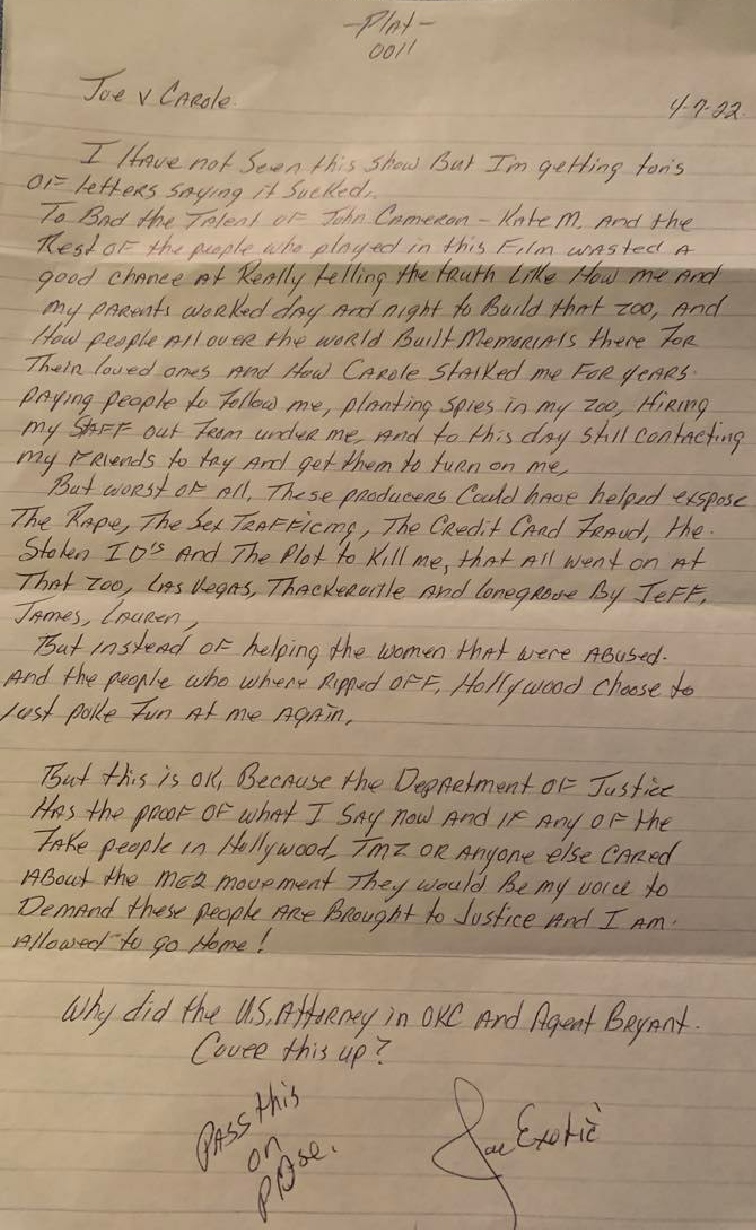 -Plat-
0011
Joe v Carole.
4-7-22
I Have not Seen this show But I'm getting tons
OF letters saying it Sucked.
To Bad the Talent OF John Cameron - Kate M. And the
Rest OF the people who played in this Film wasted A
good chance At Really telling the truth Like How me And
my parents worked day And night to Build that zoo, And
How people All over the world Built Memorials there For
Their loved ones And How Carole Stalked me For years.
paying people to Follow me, planting spies in my zoo, Hiring
my Staff out From under me, And to this day still contacting
my Friends to try And get them to turn on me,
But worst OF All, These producers Could have helped exspose
The Rape, The Sex Trafficing, The Credit Card Fraud, the
Stolen ID's And The Plot to Kill me, that All went on At
That zoo, Las Vegas, Thackerville And Lonegrove By Jeff,
James, Lauren,
But instead OF helping the women that were ABused.
And the people who where Ripped OFF, Hollywood Choose to
Just poke Fun At me Again,
But this is OK, Because the Department OF Justice
Has the proof OF what I Say now And IF Any OF the
Fake people in Hollywood, TMZ OR Anyone else CAred
About the ME2 movement They would Be my voice to
Demand these people Are Brought to Justice And I Am
Allowed to go Home!
Why did the U.S. Attorney in OKC And Agent Bryant.
Cover this up?
PASS this
on
Joe Exotic